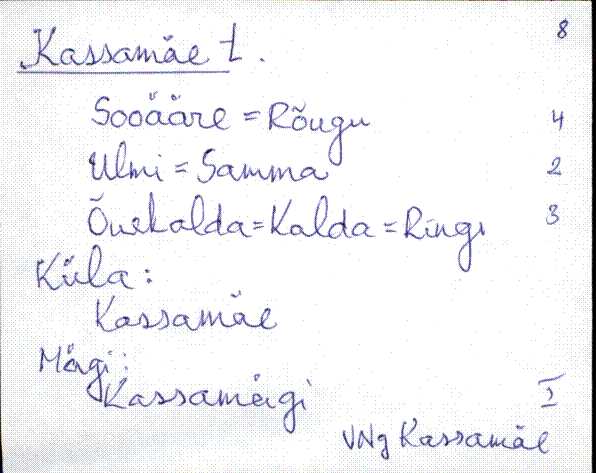 8
Kassamäe t.
Sooääre = Rõugu 4
Ulmi = Samma 2
Õnekalda = Kalda = Ringi 3
Küla:
Kassamäe
Mägi:
Kassamägi I
VNg Kassamäe